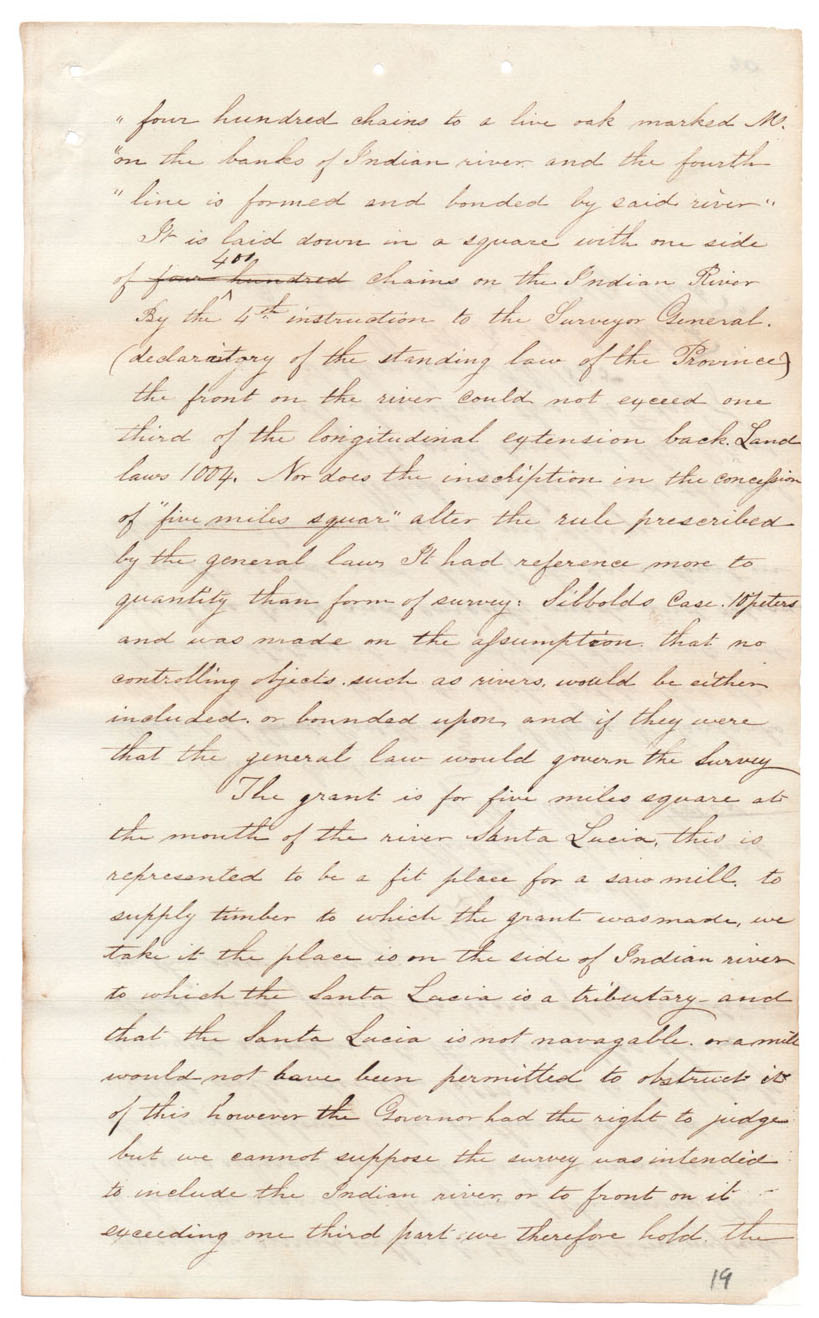 " four hundred chains to a live oak marked M.
"on the banks of Indian river and the fourth
" line is formed and bonded by said river"
It is laid down in a square with one side
400
of four hundred chains on the Indian River
By the ^ 4th instruction to the Surveyor General.
(declaritory of the standing law of the Province)
the front on the river could not exceed one
third of the longitudinal extension back. Land
laws 1004. Nor does the inscription in the concession
of "five miles squar" alter the rule prescribed
by the general law, It had reference more to
quantity than form of survey: Sibbolds Case. 10 peters
and was made on the assumption, that no
controlling objects. such as rivers, would be either
included. or bounded upon, and if they were
that the general law would govern the Survey
The grant is for five miles square at
the mouth of the river Santa Lucia, this is
represented to be a fit place for a saw mill. to
supply timber to which the grant was made, we
take it the place is on the side of Indian river
to which the Santa Lucia is a tributary - and
that the Santa Lucia is not navagable. or a mill
would not have been permitted to obstruct it
of this however the Governor had the right to judge
but we cannot suppose the survey was intended
to include the Indian river, or to front on it
exceeding one third part. we therefore hold. the
19